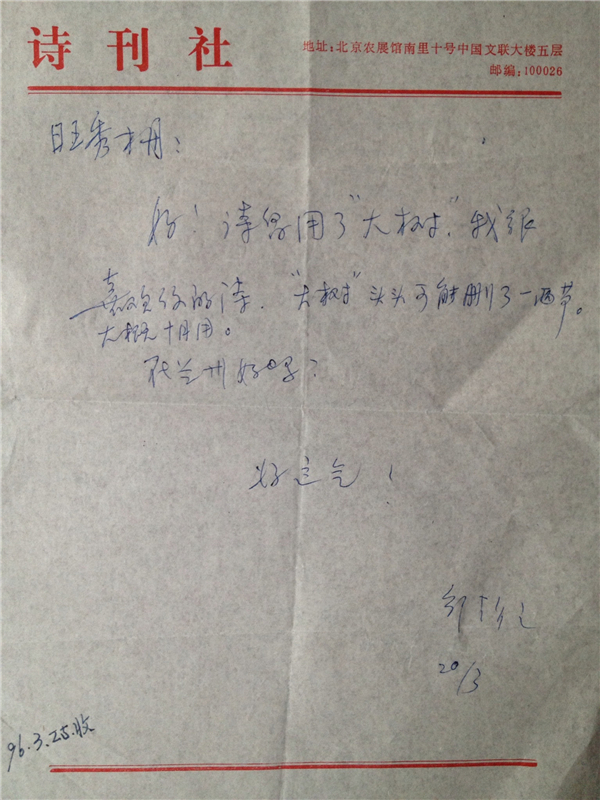 诗刊社
地址:北京农展馆南里十号中国文联大楼五层
邮编:100026
旺秀才丹:
好!诗留用了"大树",我很
喜欢你的诗,"大树"头头可能删了一两节。
大概十月用。
在兰州好吗?
好运气!
20/3
96.3.25.收